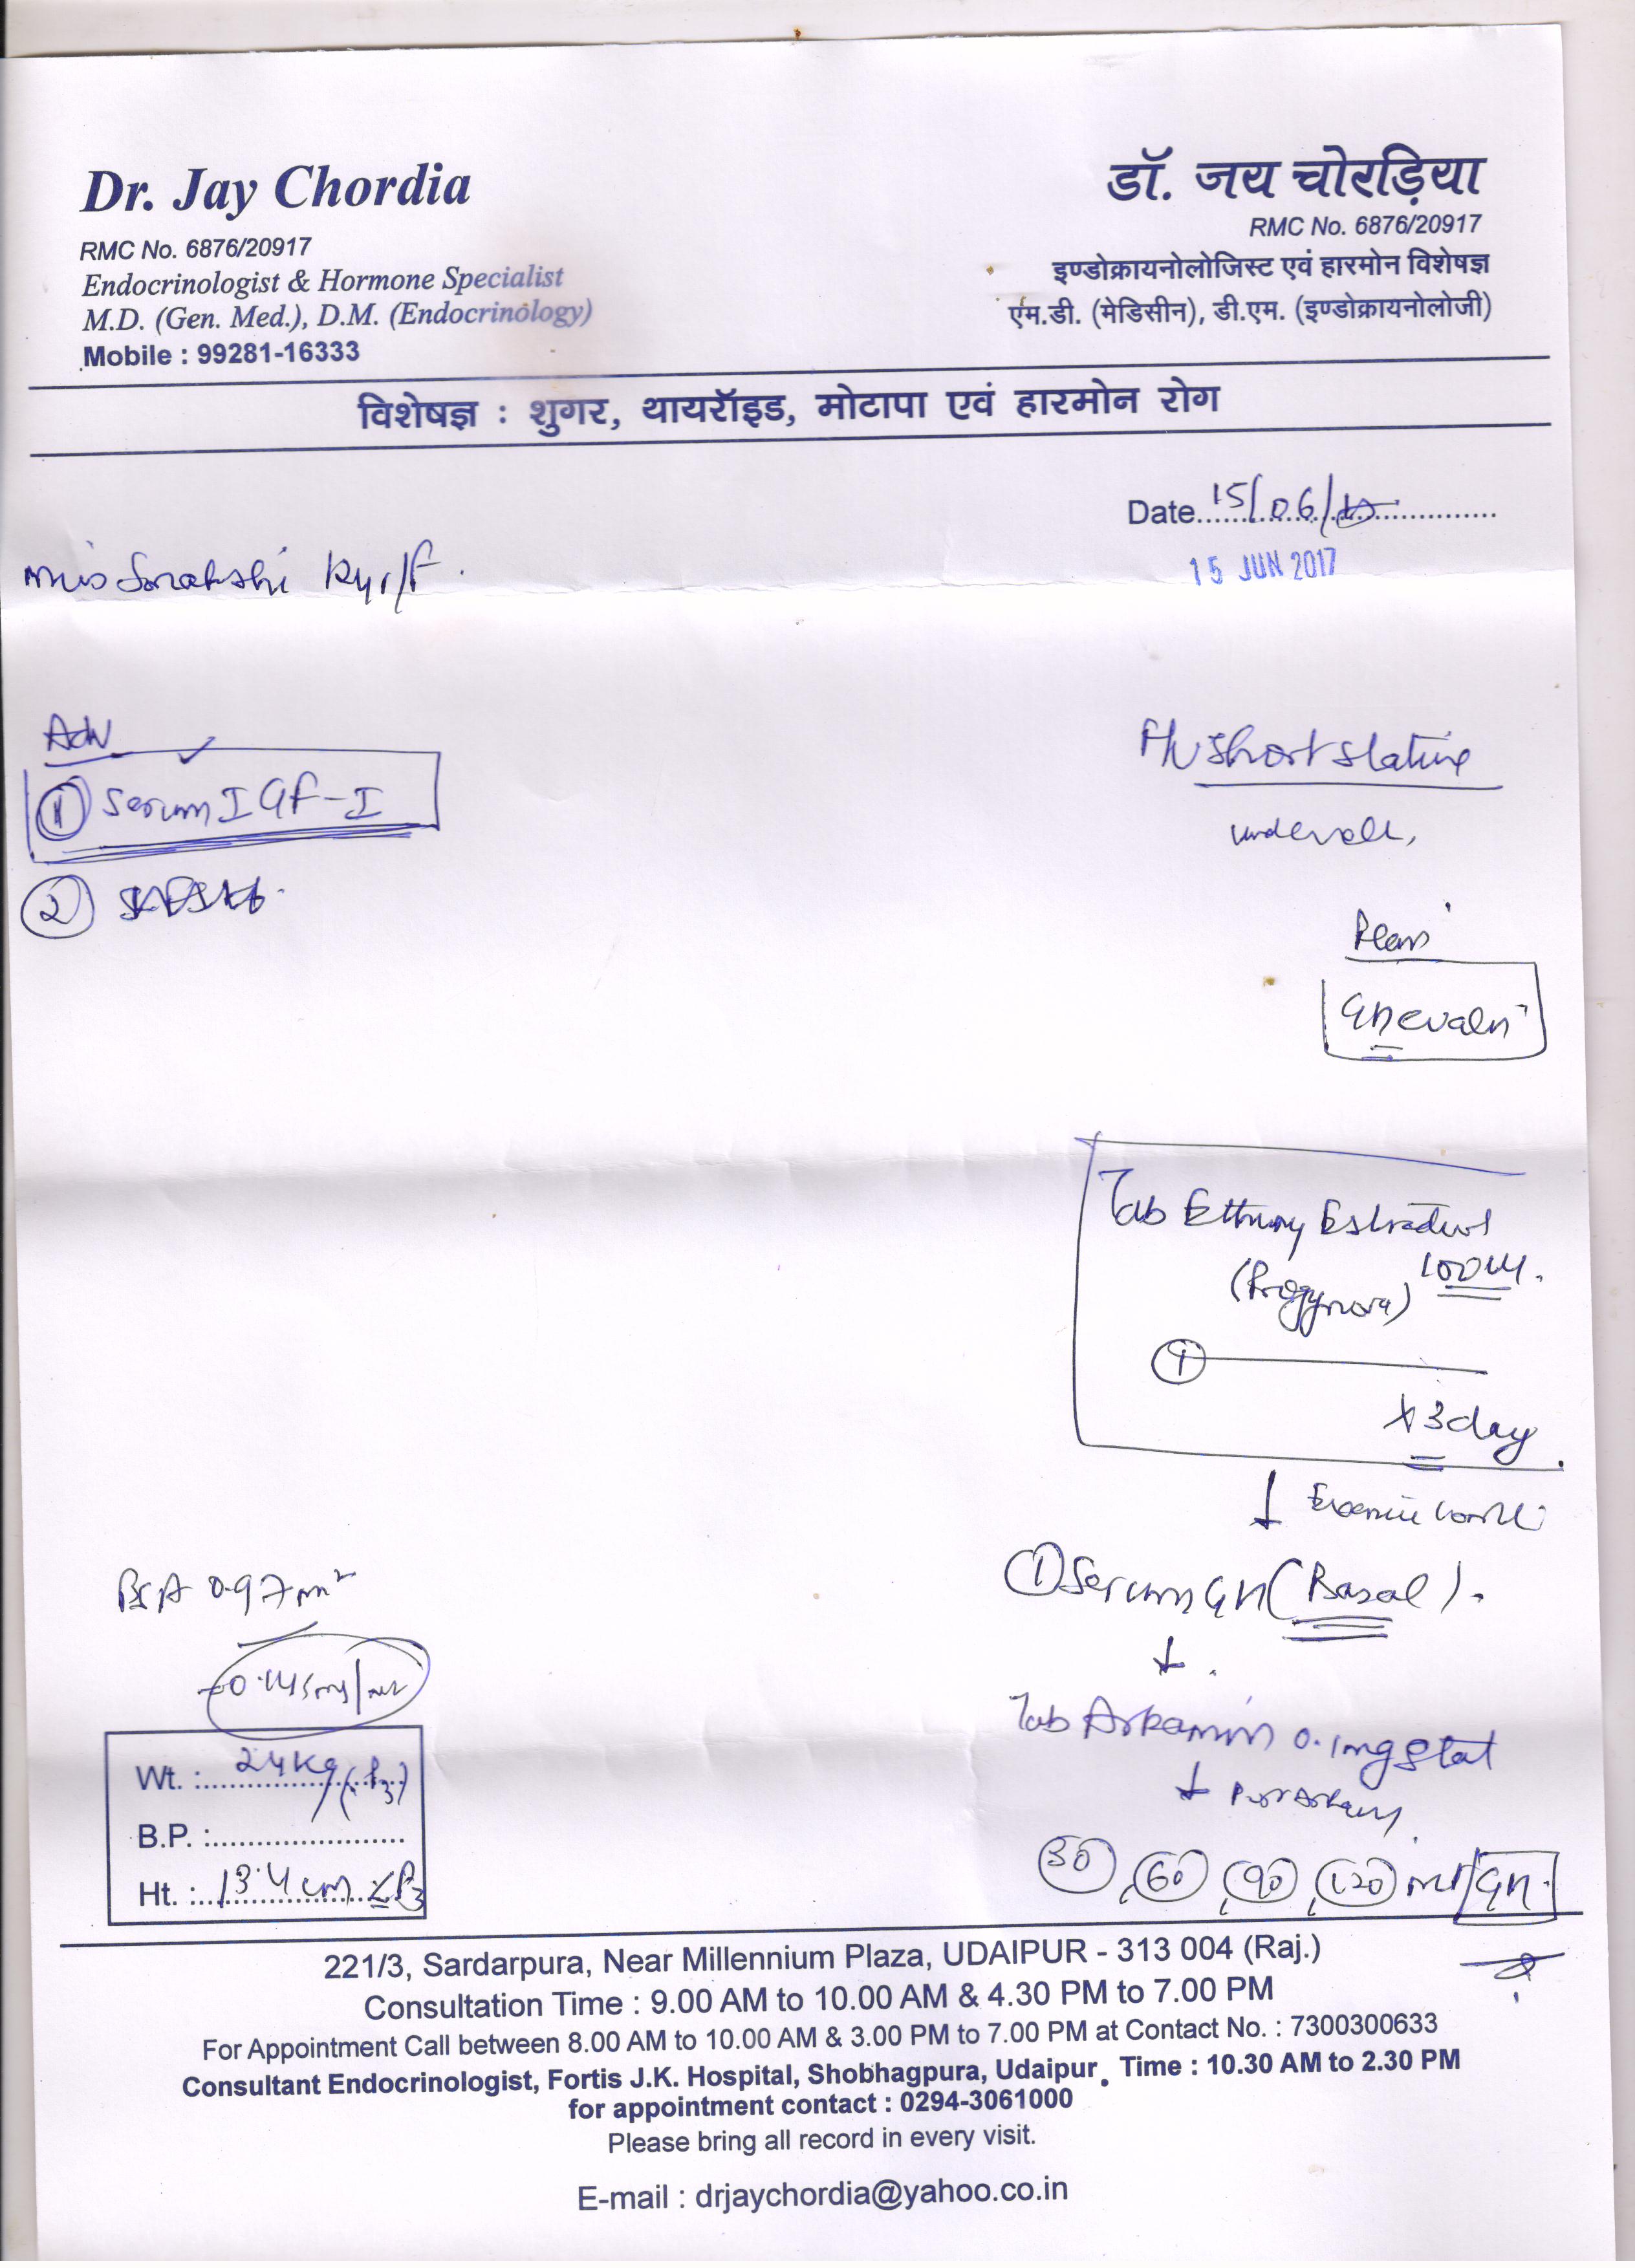 Dr. Jay Chordia
RMC No. 6876/20917
Endocrinologist & Hormone Specialist
M.D. (Gen. Med.), D.M. (Endocrinology)
Mobile : 99281-16333
डॉ. जय चोरड़िया
RMC No. 6876/20917
इण्डोक्रायनोलोजिस्ट एवं हारमोन विशेषज्ञ
एम.डी. (मेडिसीन), डी.एम. (इण्डोक्रायनोलोजी)
विशेषज्ञ : शुगर, थायरॉइड, मोटापा एवं हारमोन रोग
Date 15/06/17
15 JUN 2017
Miss
Adv
① Serum IGF-I
②
short stature
Plan
GH evaln
Tab Ethiny Estradiol
(Progynova) 100
①
x 3day
① Serum GH (Basal).
Tab Arkamin 0.1mg stat
30, 60, 90, 120 min GH.
BSA 0.97 m²
Wt. : 24 kg (P3)
B.P. :
Ht. : 134 cm <P3
221/3, Sardarpura, Near Millennium Plaza, UDAIPUR - 313 004 (Raj.)
Consultation Time : 9.00 AM to 10.00 AM & 4.30 PM to 7.00 PM
For Appointment Call between 8.00 AM to 10.00 AM & 3.00 PM to 7.00 PM at Contact No. : 7300300633
Consultant Endocrinologist, Fortis J.K. Hospital, Shobhagpura, Udaipur. Time : 10.30 AM to 2.30 PM
for appointment contact : 0294-3061000
Please bring all record in every visit.
E-mail : drjaychordia@yahoo.co.in